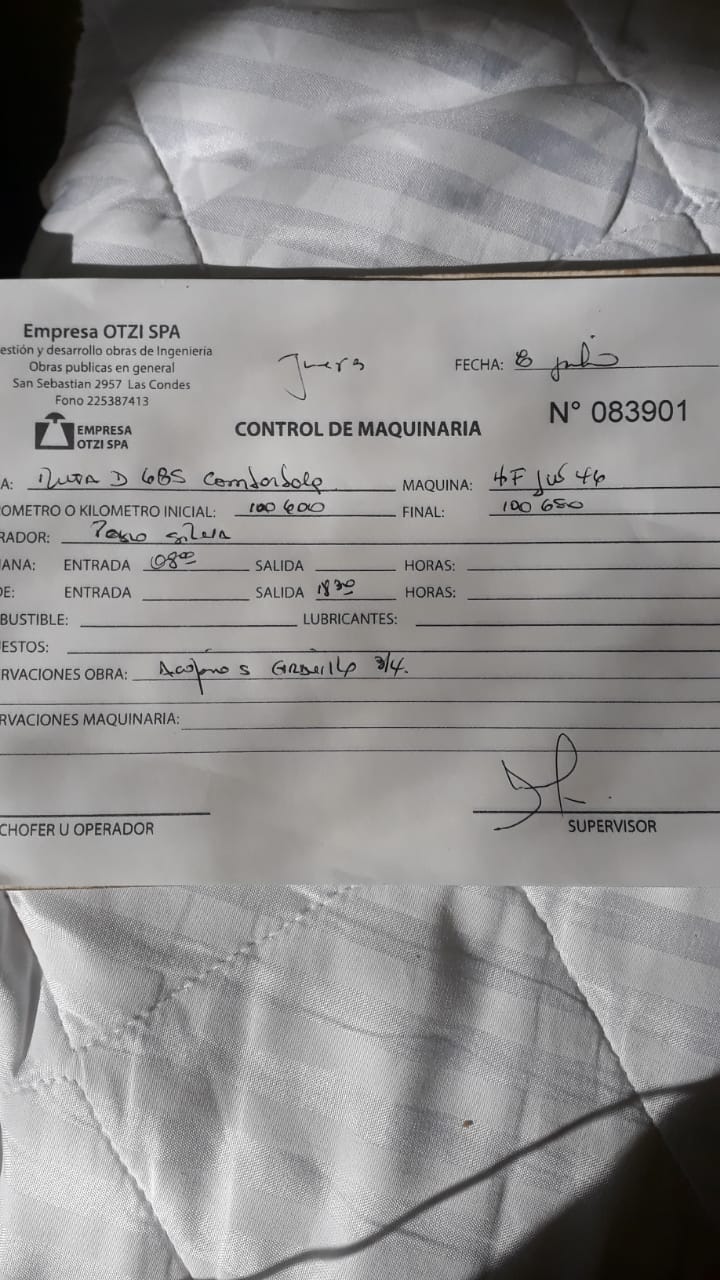 Empresa OTZI SPA
estión y desarrollo obras de Ingenieria
Obras publicas en general
San Sebastian 2957 Las Condes
Fono 225387413
EMPRESA
OTZI SPA
FECHA: 8 julio
N° 083901
CONTROL DE MAQUINARIA
A: Ruta D 685 MAQUINA:
OMETRO O KILOMETRO INICIAL: 100 600 FINAL: 100 650
RADOR: Silva
ANA: ENTRADA 08:00 SALIDA HORAS:
DE: ENTRADA SALIDA 18 30 HORAS:
BUSTIBLE: LUBRICANTES:
ESTOS:
RVACIONES OBRA: Acopios Gravilla 3/4.
RVACIONES MAQUINARIA:
CHOFER U OPERADOR
SUPERVISOR